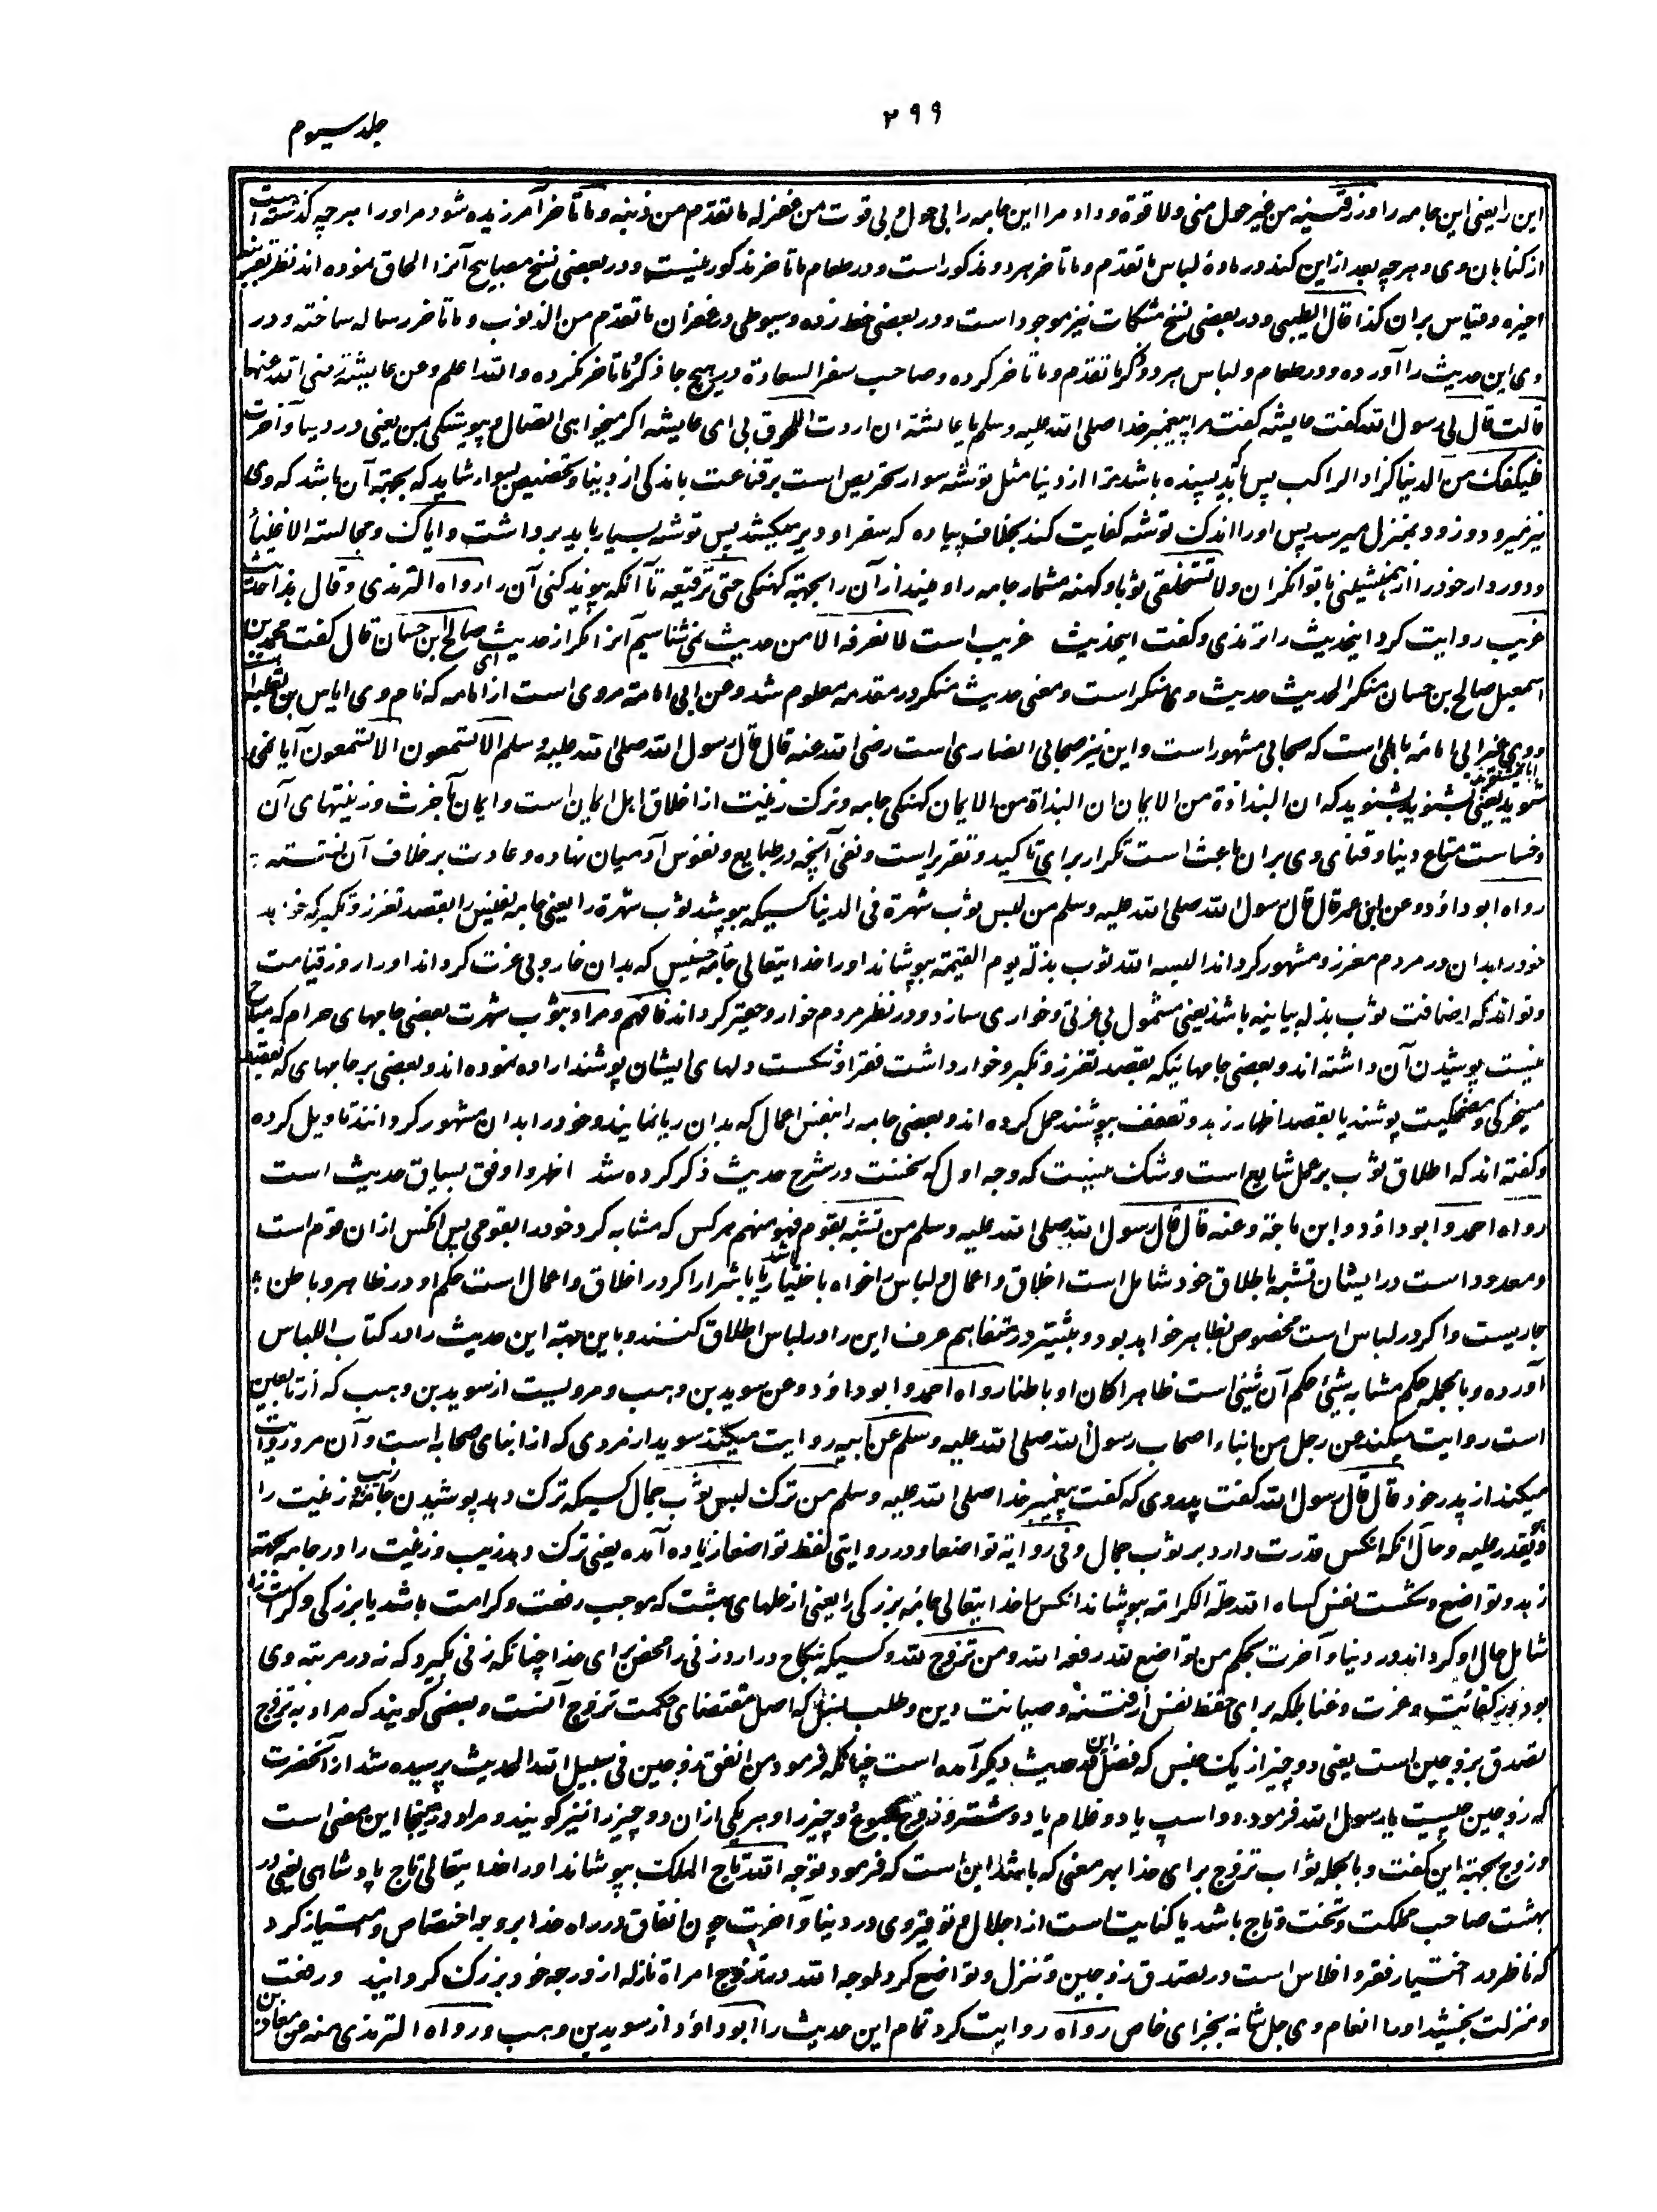 ۲۹۹
جلد سیوم
این را یعنی این جامه را ورزقنیه من غیر حول منی ولا قوة و داد مرا این جامه را بی حول و بی قوت من غفر له ما تقدم من ذنبه و ما تأخر آمرزیده شود مر او را هر چه گذشته است
از گناهان وی و هر چه بعد ازین کند در مادۀ لباس ما تقدم و ما تأخر هر دو مذکور است و در طعام ما تأخر مذکور نیست و در بعضی نسخ مصابیح آنرا الحاق نموده اند نظر بقرینه
اخیره و قیاس بران کذا قال الطیبی و در بعضی نسخ مشکات نیز موجود است و در بعضی خط زده و سیوطی در غفران ما تقدم من الذنوب و ما تأخر رساله ساخته و در
وی این حدیث را آورده و در طعام و لباس هر دو ذکر ما تقدم و ما تأخر کرده و صاحب سفر السعادة در هیچ جا ذکر ما تأخر نکرده والله اعلم وعن عایشة رضی الله عنها
قالت قال لی رسول الله گفت عایشه گفت مرا پیغمبر خدا صلی الله علیه وسلم یا عائشة ان اردت اللحوق بی ای عایشه اگر میخواهی اتصال و پیوستگی بمن یعنی در دنیا و آخرت
فلیکفک من الدنیا کزاد الراکب پس باید که بسنده باشد ترا از دنیا مثل توشه سوار تحریص است بر قناعت باندکی از دنیا و تخصیص بسوار شاید که بجهة آن باشد که وی
تیز میرود و زود بمنزل میرسد پس او را اندک توشه کفایت کند بخلاف پیاده که سفر او دیر میکشد پس توشه بسیار باید برداشت وایاک ومجالسة الاغنیاء
و دور دار خود را از همنشینی با توانگران ولا تستخلقی ثوبا و کهنه مشمار جامه را و مینداز آن را بجهة کهنگی حتی ترقعیه تا آنکه پیوند کنی آن را رواه الترمذی وقال هذا حدیث
غریب روایت کرد اینحدیث را ترمذی و گفت اینحدیث غریب است لا نعرفه الا من حدیث نمی شناسیم آنرا مگر از حدیث صالح ابن حسان قال گفت محمد بن
اسمعیل صالح بن حسان منکر الحدیث حدیث وی منکر است و معنی حدیث منکر در مقدمه معلوم شد وعن ابی امامة مروی است از ابی امامه که نام وی ایاس بن ثعلبه است
و وی غیر ابی امامه باهلی است که صحابی مشهور است و این نیز صحابی انصاری است رضی الله عنه قال قال رسول الله صلی الله علیه وسلم الا تسمعون الا تسمعون آیا نمی
شنوید آیا نمی شنوید یعنی بشنوید بشنوید که ان البذاذة من الایمان ان البذاذة من الایمان کهنگی جامه و ترک زینت از اخلاق اهل ایمان است و ایمان بآخرت و زینتهای آن
و خساست متاع دنیا و فنای وی بران باعث است تکرار برای تاکید و تقریر است و نفی آنچه در طبایع و نفوس آدمیان نهاده و عادت بر خلاف آن نشسته
رواه ابو داؤد وعن ابن عمر قال قال رسول الله صلی الله علیه وسلم من لبس ثوب شهرة فی الدنیا کسیکه بپوشد ثوب شهرة را یعنی جامه نفیس را بقصد تعزز و تکبر که خواهد
خود را بدان در مردم معزز و مشهور گرداند البسه الله ثوب مذلة یوم القیمة بپوشاند او را خدایتعالی جامه خسیس که بدان خوار و بی عزت گرداند او را روز قیامت
و تواند که اضافت ثوب بمذله بیانیه باشد یعنی مشمول بی عزتی و خواری سازد و در نظر مردم خوار و حقیر گرداند فافهم و مراد بثوب شهرت بعضی جامهای حرام که مباح
نیست پوشیدن آن داشته اند و بعضی جامهائیکه بقصد تعزز و تکبر و خوار داشت فقرا و شکست دلهای ایشان پوشند اراده نموده اند و بعضی بر جامهای که بقصد
مسخرگی و مضحکیت پوشند یا بقصد اظهار زهد و تعفف بپوشند حمل کرده اند و بعضی جامه را بنفس اعمال که بدان ریا نمایند و خود را بدان مشهور گردانند تاویل کرده
و گفته اند که اطلاق ثوب بر عمل شایع است و شک نیست که وجه اول که نخست در شرح حدیث ذکر کرده شد اظهر و اوفق بسیاق حدیث است
رواه احمد و ابو داؤد وابن ماجة وعنه قال قال رسول الله صلی الله علیه وسلم من تشبه بقوم فهو منهم هر کس که مشابه کرد خود را بقومی پس آنکس ازان قوم است
و معدود است در ایشان تشبه باطلاق خود شامل است اخلاق و اعمال و لباس را خواه باخیار باشد یا باشرار اگر در اخلاق و اعمال است حکم او در ظاهر و باطن
جاریست و اگر در لباس است مخصوص بظاهر خواهد بود و بیشتر در متفاهم عرف این را در لباس اطلاق کنند و باین جهة این حدیث را در کتاب اللباس
آورده و بالجمله حکم مشابه بشیٔ حکم آن شیٔ است ظاهرا کان او باطنا رواه احمد وابو داؤد وعن سوید بن وهب و مرویست از سوید بن وهب که از تابعین
است روایت میکند عن رجل من ابناء اصحاب رسول الله صلی الله علیه وسلم عن ابیه روایت میکند سوید از مردی که از ابنای صحابه است و آن مرد روایت
میکند از پدر خود قال قال رسول الله گفت پدر وی که گفت پیغمبر خدا صلی الله علیه وسلم من ترک لبس ثوب جمال کسیکه ترک دهد پوشیدن جامه زیب و زینت را
وهو یقدر علیه و حال آنکه آنکس قدرت دارد بر ثوب جمال وفی روایة تواضعا و در روایتی لفظ تواضعا زیاده آمده یعنی ترک دهد زیب و زینت را در جامه بجهة
زهد و تواضع و شکست نفس کساه الله حلة الکرامة بپوشاند آنکس را خدایتعالی جامه بزرگی را یعنی از حلهای بهشت که موجب رفعت و کرامت باشد یا بزرگی و کرامت را
شامل حال او گرداند در دنیا و آخرت بحکم من تواضع لله رفعه الله ومن تزوج لله و کسیکه نکاح درآرد زنی را محض برای خدا چنانکه زنی بگیرد که نه در مرتبه وی
بود در کفائت و عزت و غنا بلکه برای حفظ نفس از فتنه و صیانت دین و طلب نسل که اصل مقتضای حکمت تزوج آنست و بعضی گویند که مراد به تزوج
تصدق بزوجین است یعنی دو چیز از یک جنس که فضل این در حدیث دیگر آمده است چنانکه فرمود من انفق زوجین فی سبیل الله الحدیث پرسیده شد از آنحضرت
که زوجین چیست یا رسول الله فرمود دو اسپ یا دو غلام یا دو شتر و زوج مجموع دو چیز را و هر یکی ازان دو چیز را نیز گویند و مراد در اینجا این معنی است
و زوج بجهة این گفت و بالجمله ثواب تزوج برای خدا بهر معنی که باشد این است که فرمود توجه الله تاج الملک بپوشاند او را خدایتعالی تاج پادشاهی یعنی در
بهشت صاحب مملکت و تخت و تاج باشد یا کنایت است از اجلال و توقیر وی در دنیا و آخرت چون انفاق در راه خدا بر وجه اختصاص و امتیاز کرد
که ناظر در اختیار فقر و افلاس است در تصدق بزوجین و تنزل و تواضع کرد لوجه الله در تزوج امراة نازله از درجه خود بزرگ گردانید و رفعت
و منزلت بخشید او را انعام وی جل شانه بجزای خاص رواه روایت کرد تمام این حدیث را ابو داؤد از سوید بن وهب و رواه الترمذی منه عن معاذ بن